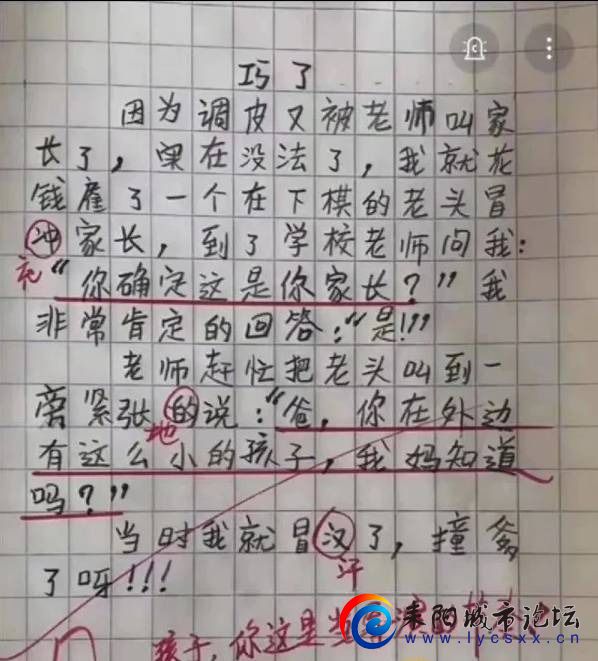 巧了
因为调皮又被老师叫家
长了，实在没法了，我就花
钱雇了一个在下棋的老头冒
冲家长，到了学校老师问我：
充
“你确定这是你家长？”我
非常肯定的回答：“是!!”
老师赶忙把老头叫到一
旁紧张的说：“爸，你在外边
地
有这么小的孩子，我妈知道
吗？”
当时我就冒汉了，撞爹
汗
了呀!!!
孩子，你这是
耒阳城市论坛
www.lycsxx.cn